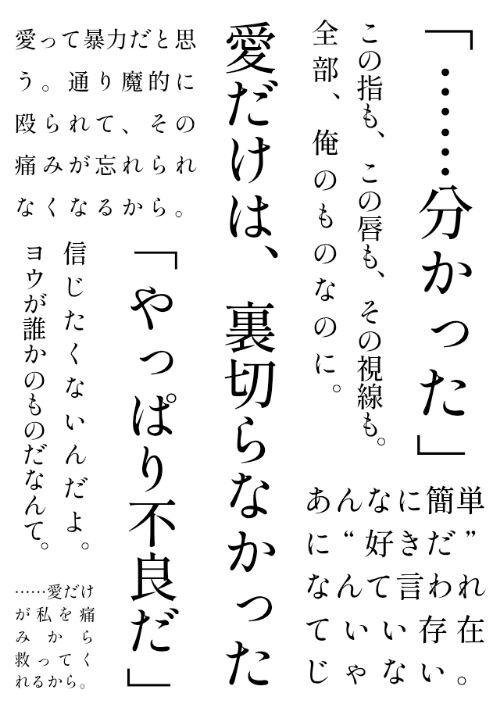 「……分かった」
この指も、この唇も、その視線も。
全部、俺のものなのに。
あんなに簡単
に“好きだ”
なんて言われ
ていい存在
じゃない。
愛だけは、裏切らなかった
愛って暴力だと思
う。通り魔的に
殴られて、その
痛みが忘れられ
なくなるから。
「やっぱり不良だ」
信じたくないんだよ。
ヨウが誰かのものだなんて。
……愛だけ
が私を痛
みから
救ってく
れるから。